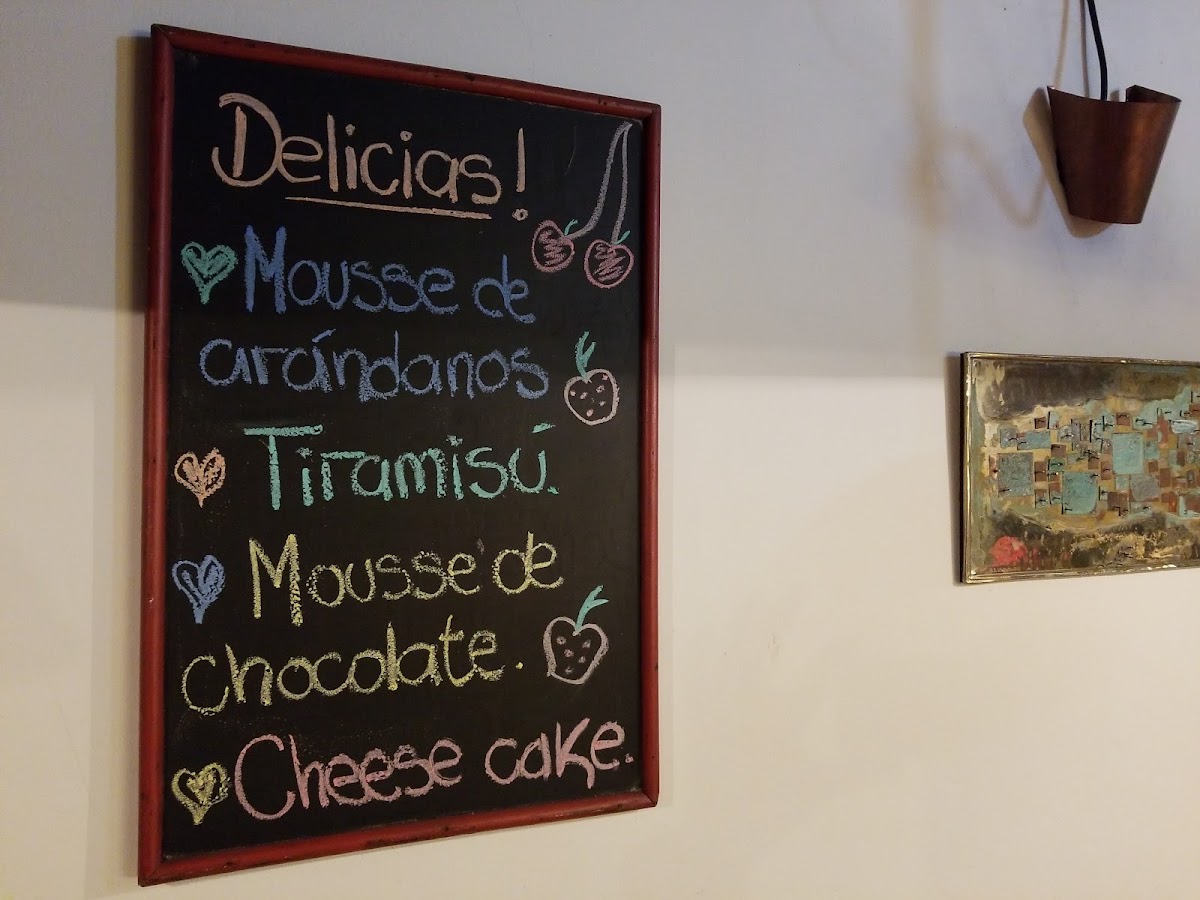 Delicias!
Mousse de
arándanos
Tiramisú.
Mousse de
chocolate.
Cheese cake.